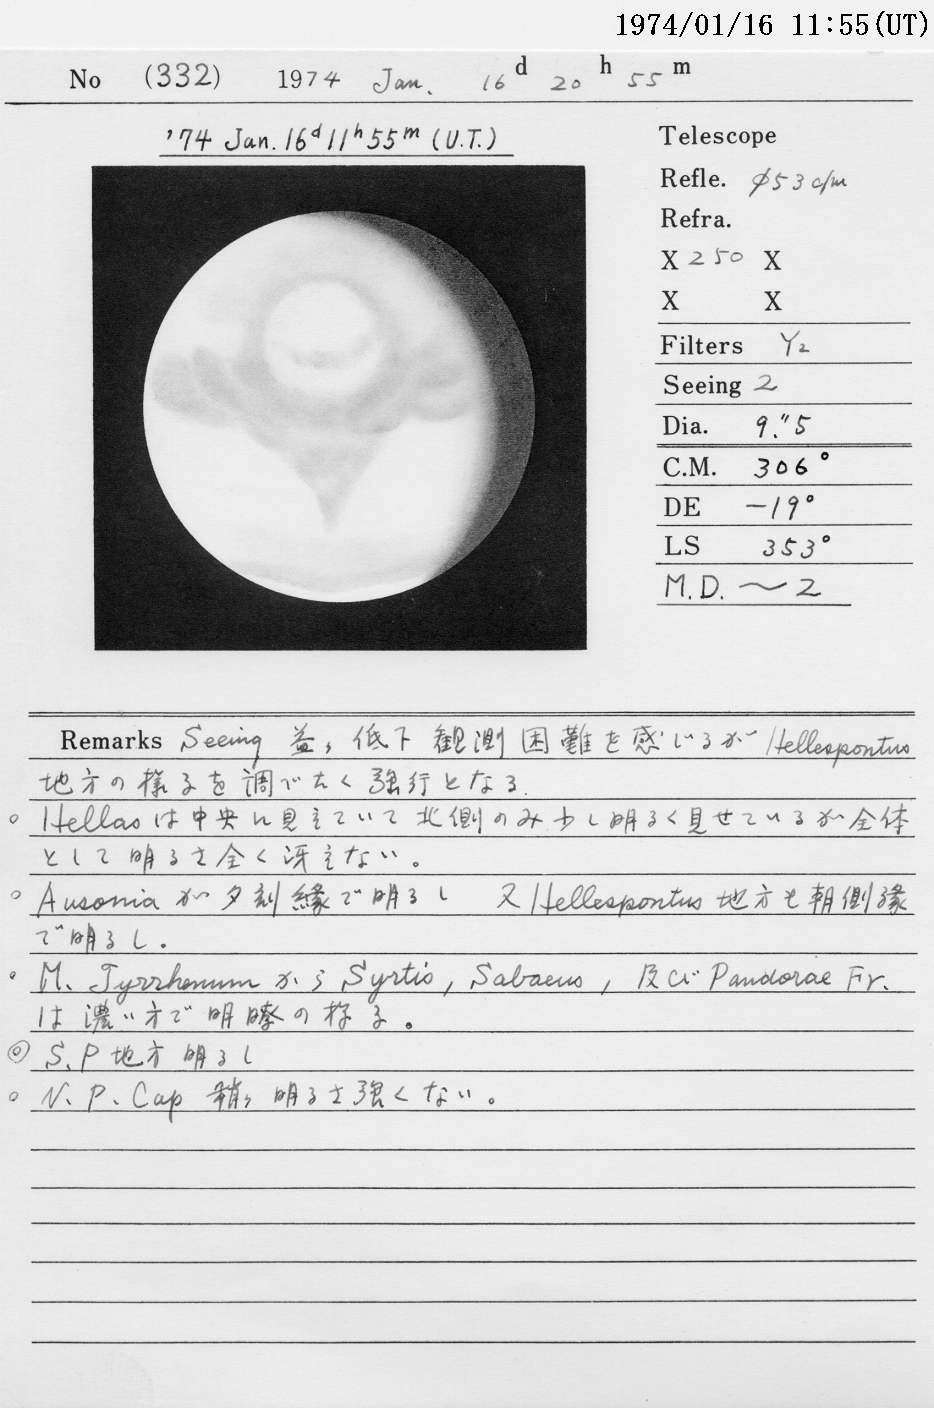 1974/01/16 11:55(UT)
No (332) 1974 Jan. 16d 20h 55m
'74 Jan. 16d 11h 55m (U.T.)
Telescope
Refle. φ53c/m
Refra.
X 250 X
X X
Filters Y2
Seeing 2
Dia. 9."5
C.M. 306°
DE -19°
LS 353°
M.D. ~2
Remarks Seeing 益々低下 観測困難を感じるが Hellespontus
地方の様子を調べたく強行となる.
○ Hellasは中央に見えていて北側のみ少し明るく見せているが全体
として明るさ全く冴えない。
○ Ausonia が夕刻縁で明るし 又 Hellespontus 地方も朝側縁
で明るし.
○ M. Tyrrhenum から Syrtis, Sabaeus, 及び Pandorae Fr.
は濃い方で明瞭の様子。
◎ S.P地方 明るし
○ N.P.Cap 稍々明るさ強くない。